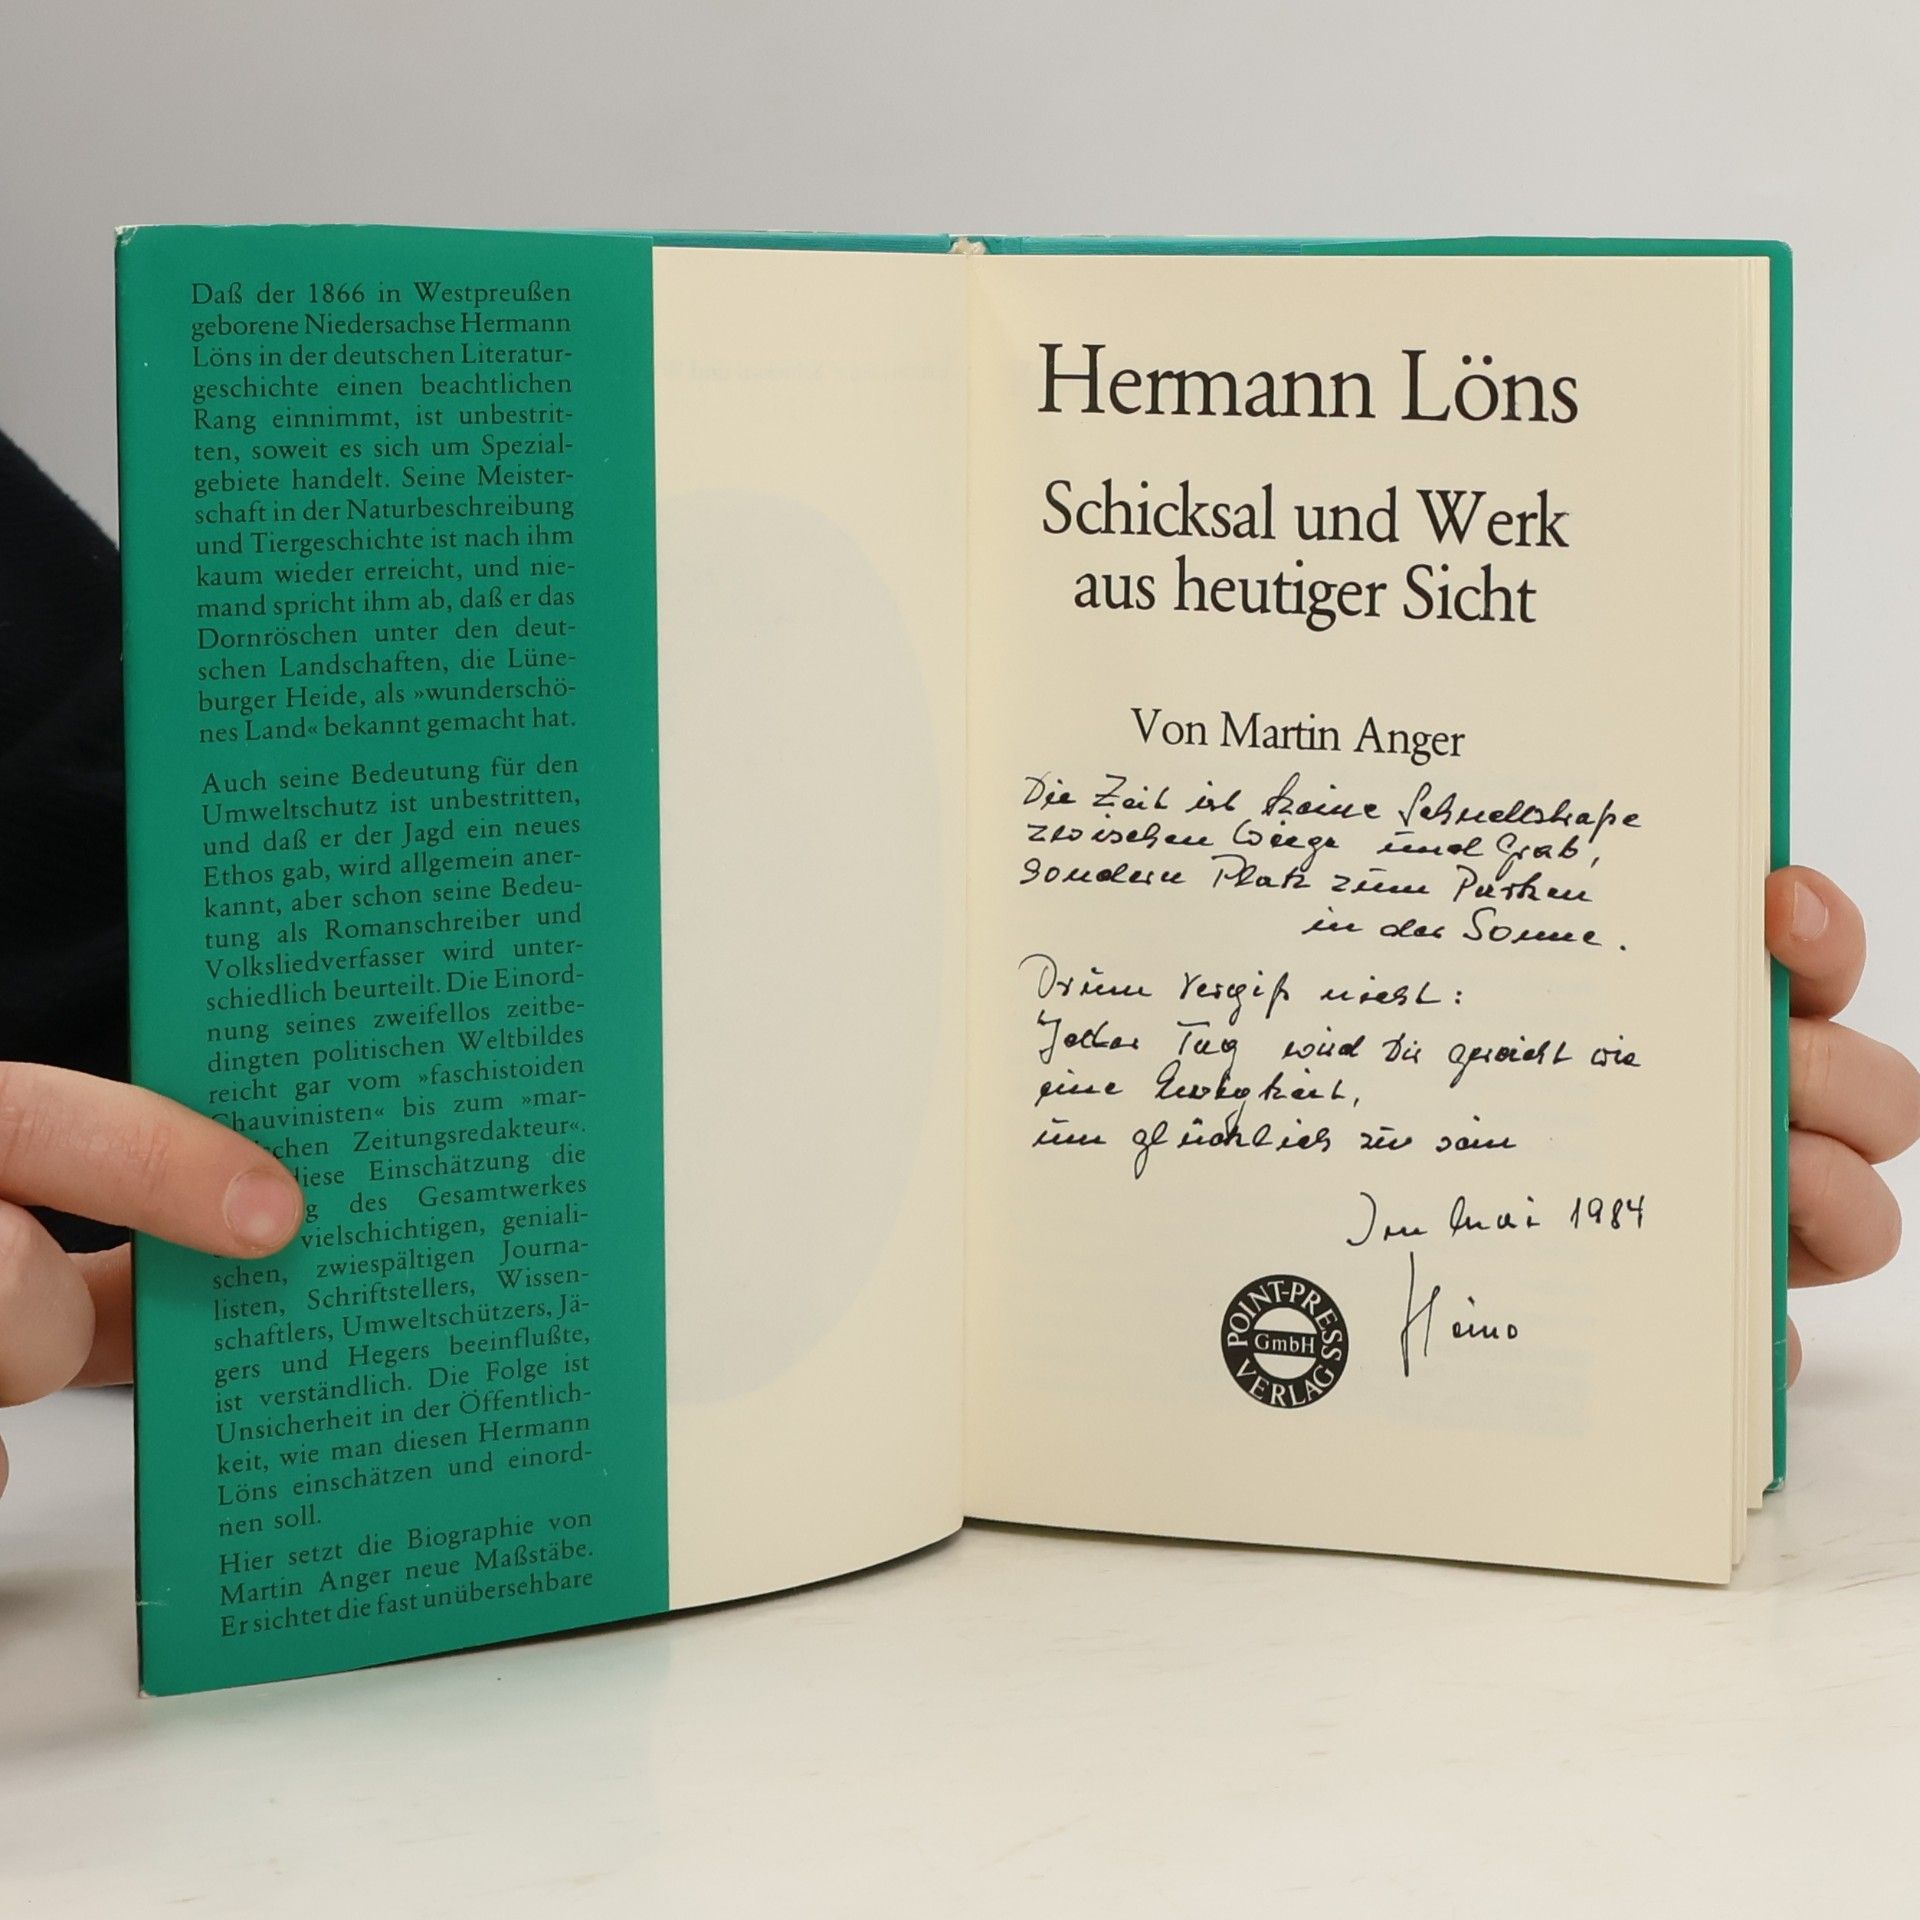 Daß der 1866 in Westpreußen
geborene Niedersachse Hermann
Löns in der deutschen Literatur-
geschichte einen beachtlichen
Rang einnimmt, ist unbestrit-
ten, soweit es sich um Spezial-
gebiete handelt. Seine Meister-
schaft in der Naturbeschreibung
und Tiergeschichte ist nach ihm
kaum wieder erreicht, und nie-
mand spricht ihm ab, daß er das
Dornröschen unter den deut-
schen Landschaften, die Lüne-
burger Heide, als »wunderschö-
nes Land« bekannt gemacht hat.
Auch seine Bedeutung für den
Umweltschutz ist unbestritten,
und daß er der Jagd ein neues
Ethos gab, wird allgemein aner-
kannt, aber schon seine Bedeu-
tung als Romanschreiber und
Volksliedverfasser wird unter-
schiedlich beurteilt. Die Einord-
nung seines zweifellos zeitbe-
dingten politischen Weltbildes
reicht gar vom »faschistoiden
Chauvinisten« bis zum »mar-
chen Zeitungsredakteur«.
diese Einschätzung die
g des Gesamtwerkes
vielschichtigen, geniali-
schen, zwiespältigen Journa-
listen, Schriftstellers, Wissen-
schaftlers, Umweltschützers, Jä-
gers und Hegers beeinflußte,
ist verständlich. Die Folge ist
Unsicherheit in der Öffentlich-
keit, wie man diesen Hermann
Löns einschätzen und einord-
nen soll.
Hier setzt die Biographie von
Martin Anger neue Maßstäbe.
Er sichtet die fast unübersehbare
Hermann Löns
Schicksal und Werk
aus heutiger Sicht
Von Martin Anger
Die Zeit ist keine Schnellstraße
zwischen Wiege und Grab,
sondern Platz zum Parken
in der Sonne.
Drum vergiß nicht:
Jeder Tag wird Dir gereicht wie
eine Ewigkeit,
um glücklich zu sein
Im Mai 1984
Heino
POINT-PRESS
GmbH
VERLAG